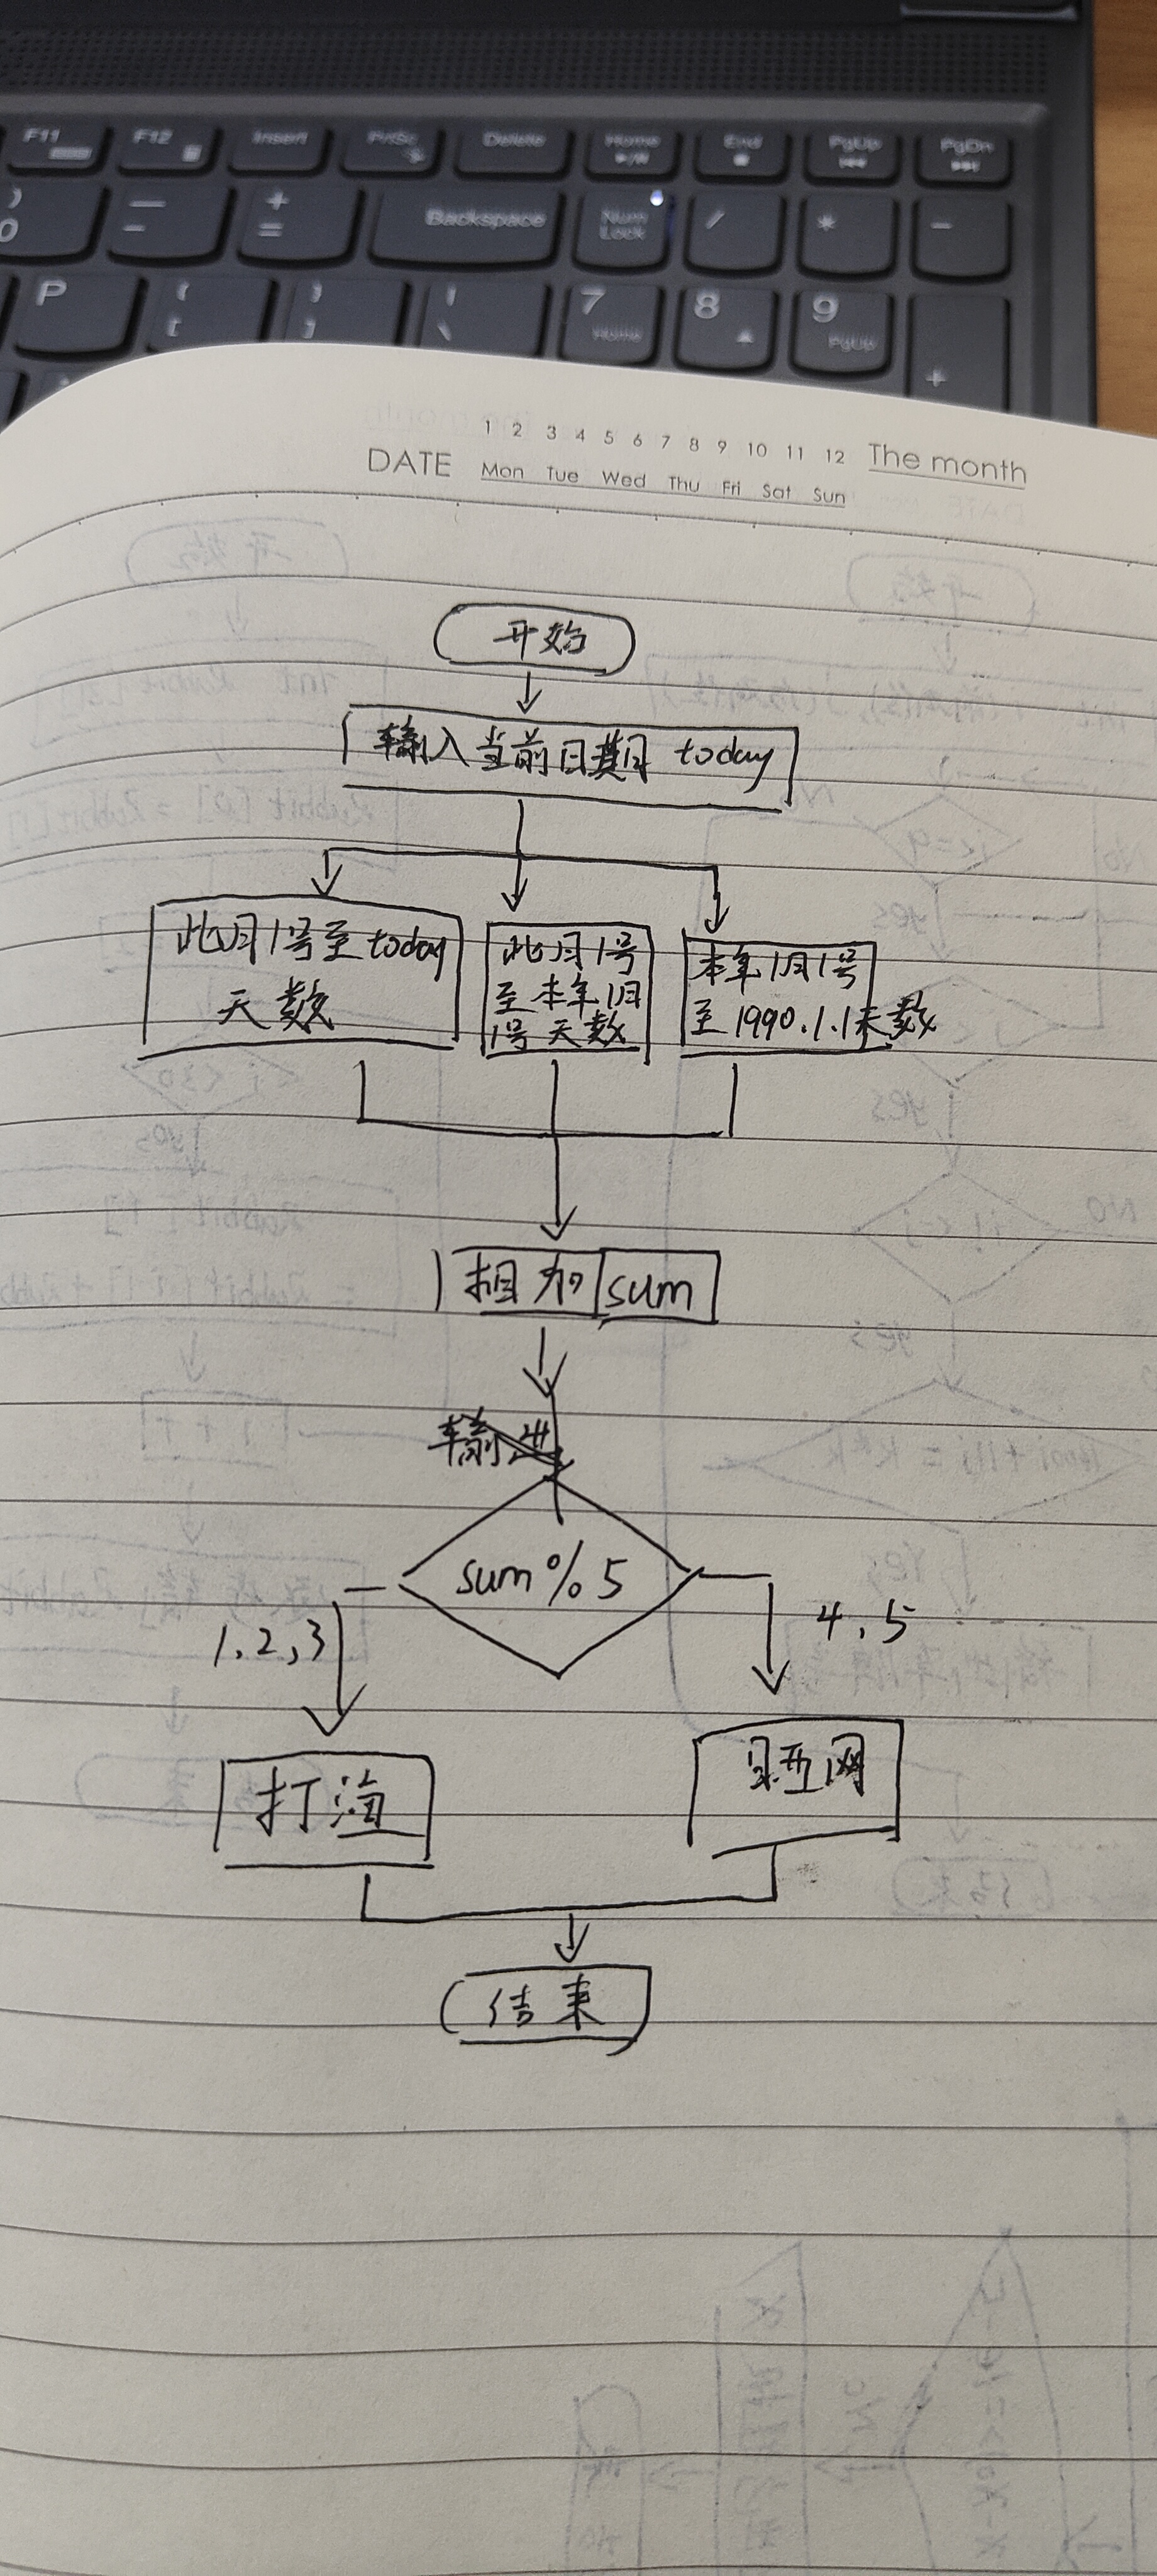 F11 F12 Insert PrtSc Delete Home End PgUp PgDn
) 0 — - + = Backspace Num Lock / * -
P { [ } ] | \ 7 Home 8 9 PgUp +
1 2 3 4 5 6 7 8 9 10 11 12 The month
DATE Mon Tue Wed Thu Fri Sat Sun
开始
输入当前日期 today
此月1号至today
天数
此月1号
至本年1月
1号天数
本年1月1号
至1990.1.1天数
相加 sum
输出
sum%5
1,2,3
4,5
打渔
晒网
结束